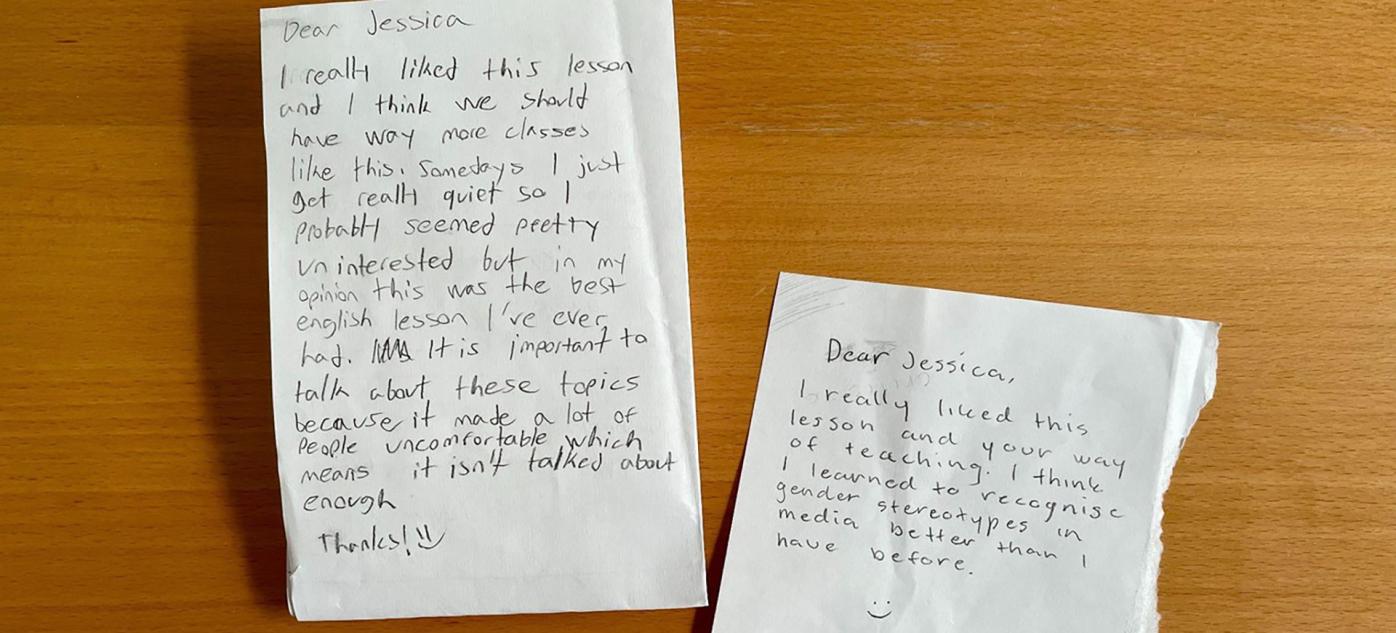 Dear Jessica
I really liked this lesson
and I think we should
have way more classes
like this. Somedays I just
get really quiet so I
probably seemed pretty
uninterested but in my
opinion this was the best
english lesson I've ever
had. It is important to
talk about these topics
because it made a lot of
people uncomfortable which
means it isn't talked about
enough
Thanks!
Dear Jessica,
I really liked this
lesson and your way
of teaching. I think
I learned to recognise
gender stereotypes in
media better than I
have before.